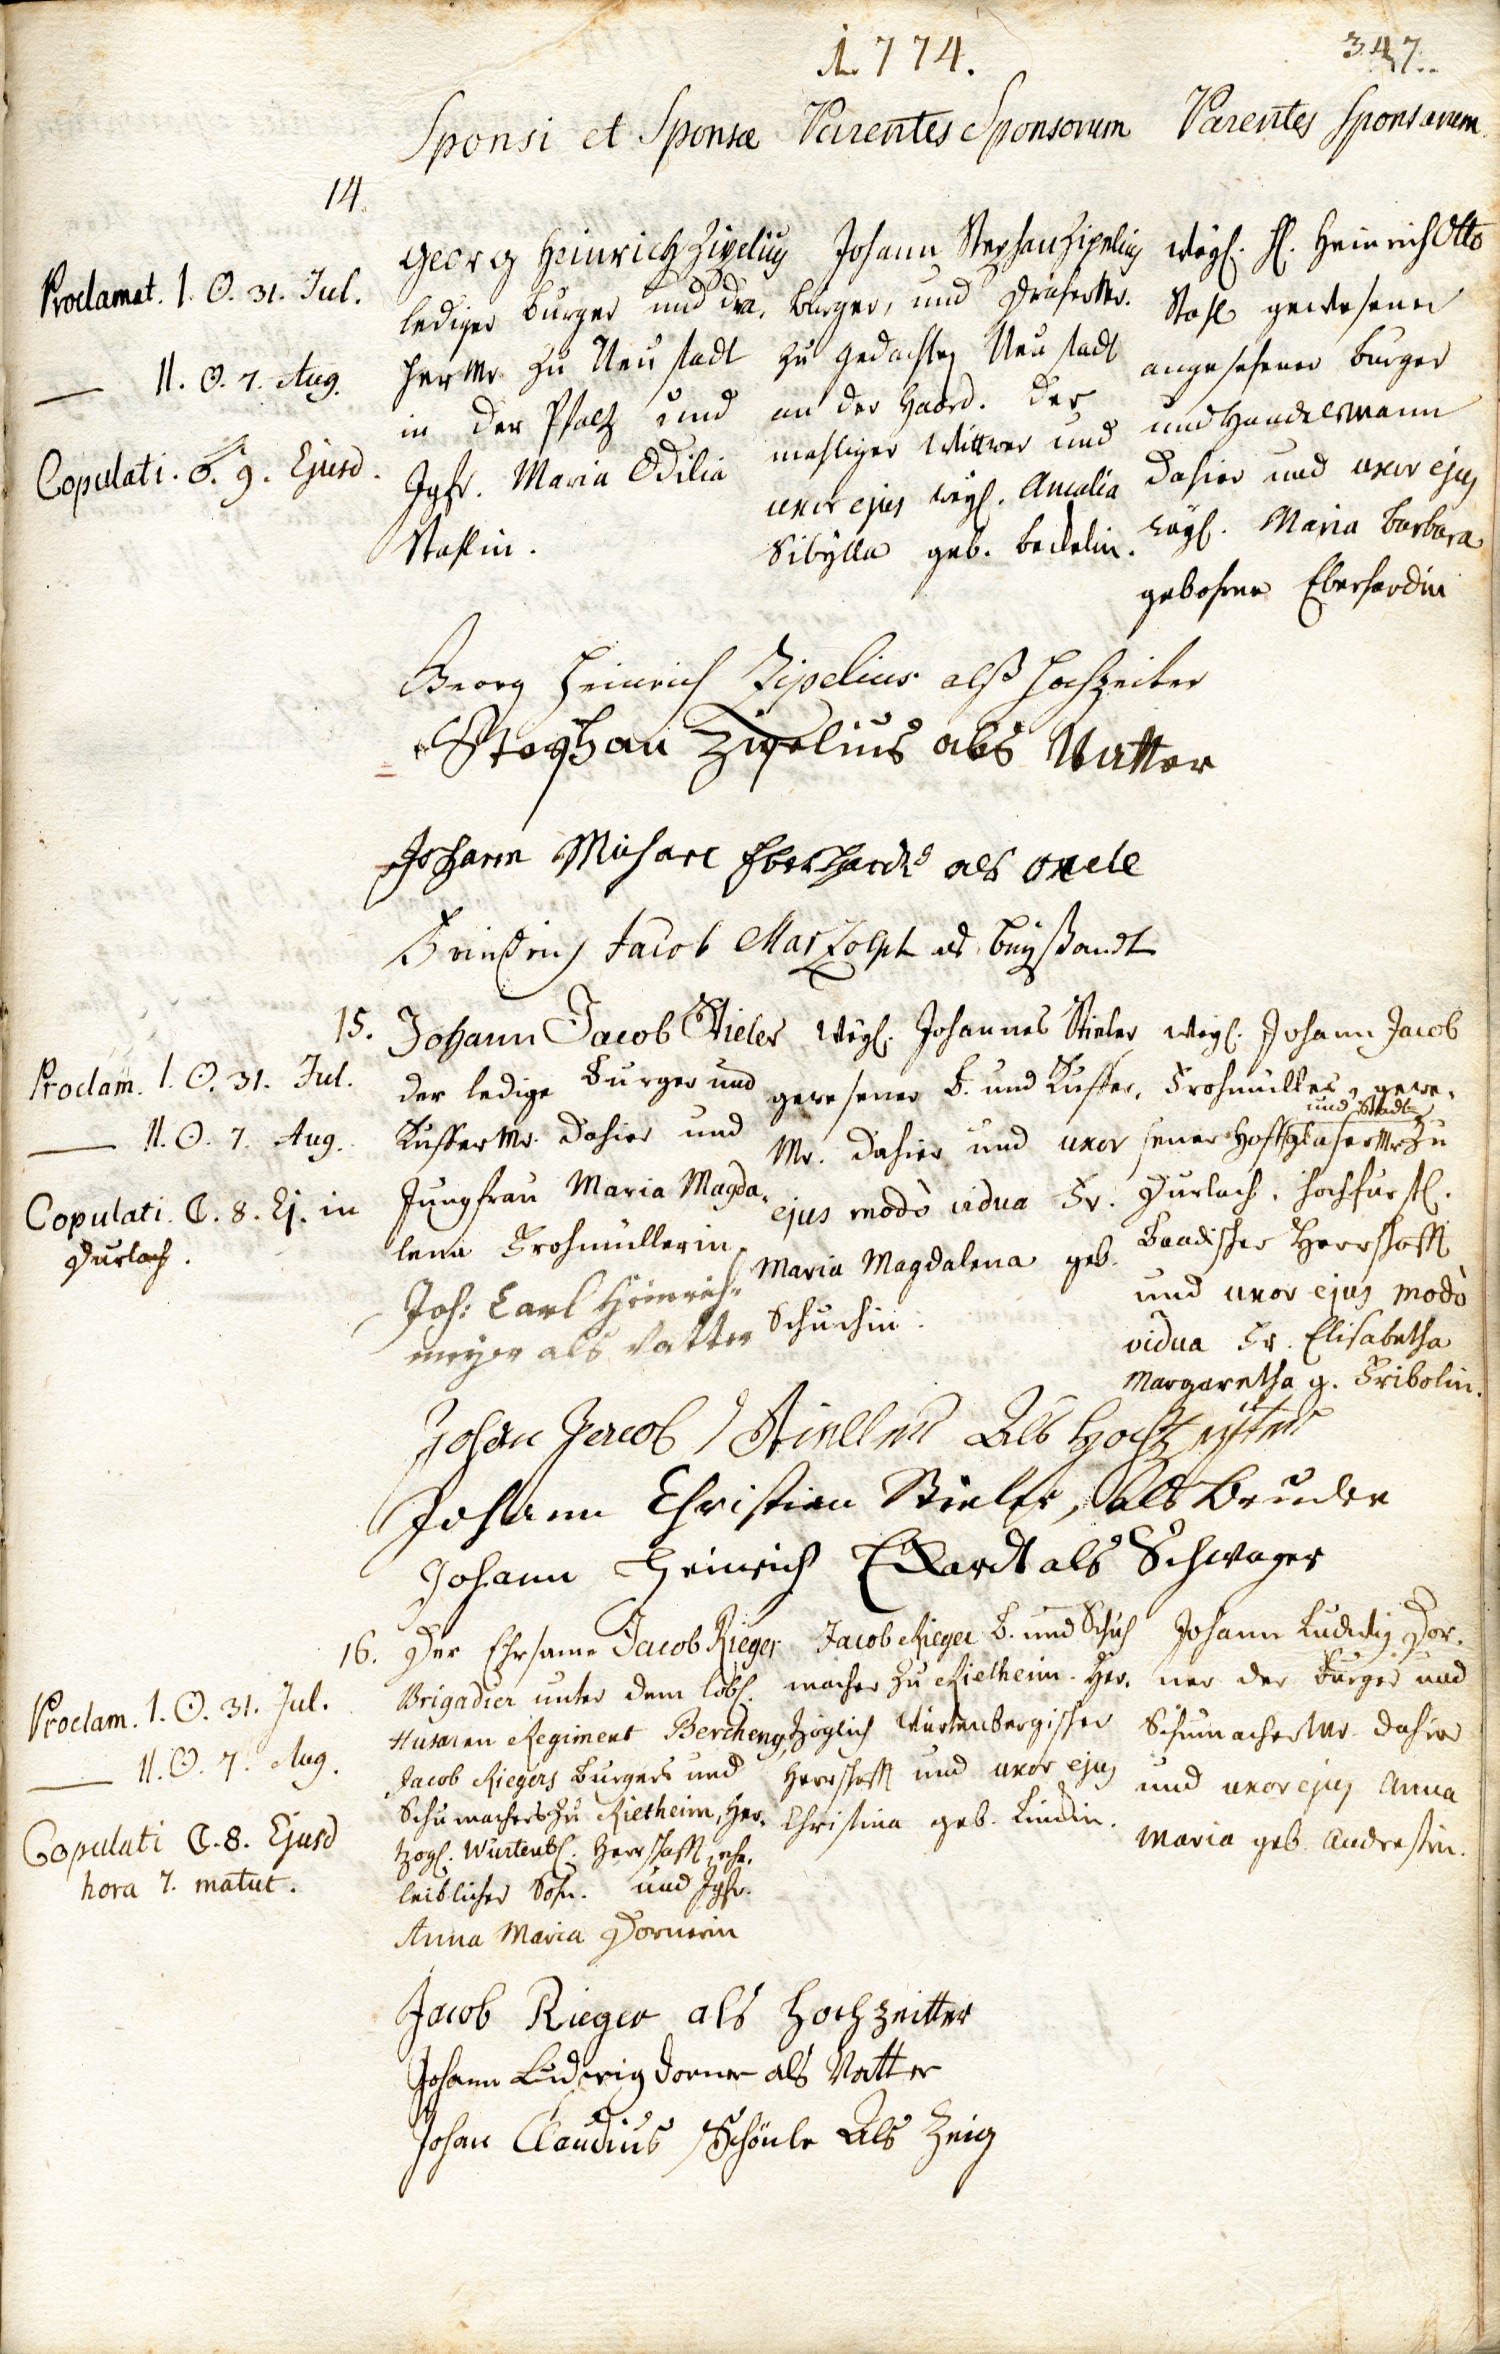 1774.
347.
Sponsi et Sponsæ
Parentes Sponsorum
Parentes Sponsarum.
14.
Proclamat. I. ☉. 31. Jul.
— II. ☉. 7. Aug.
Copulati. ♂. 9. Ejusd.
Georg Heinrich Zipelius
lediger Burger und Dra-
her Mr. zu Neustadt
in der Pfaltz und
Jgfr. Maria Odilia
Stahlin.
Johann Stephan Zipelius
Burger, und Draher Mr.
zu gedachtem Neustadt
an der Haard. der
mahliger Wittwer und
uxor ejus weyl. Amalia
Sibÿlla geb. Beckelin.
weyl. H. Heinrich Otto
Stahl gewesener
angesehener Burger
und Handelsmann
dahier und uxor ejus
weyl. Maria Barbara
gebohrne Eberhardin
Georg Heinrich Zipelius alß Hochzeiter
Stephan Zipelius als Vatter
Johann Michael Eberhardt als oncle
Friedrich Jacob Marzolph als beystandt
15.
Proclam. I. ☉. 31. Jul.
— II. ☉. 7. Aug.
Copulati. ☾. 8. Ej. in
Durlach.
Johann Jacob Stieler
der ledige Burger und
Kuffer Mr. dahier und
Jungfrau Maria Magda-
lena Frohmüllerin.
Joh: Carl Heinrich
meyer als Vatter
weyl. Johannes Stieler
gewesener B. und Kuffer-
Mr. dahier und uxor
ejus modò vidua Fr.
Maria Magdalena geb.
Schuchin.
weyl. Johann Jacob
Frohmüller, gewe-
und Stadt-
sener Hoff Glaser Mr zu
Durlach, Hochfürstl.
Baadischer Herrschafft
und uxor ejus modò
vidua Fr. Elisabetha
Margaretha g. Fribolin.
Johan Jacob Stieller Als Hochzeyter
Johann Christian Stieler, als Bruder
Johann Heinrich Eckardt als Schwager
16.
Proclam. I. ☉. 31. Jul.
— II. ☉. 7. Aug.
Copulati ☾. 8. Ejusd
hora 7. matut.
Der Ehrsame Jacob Rieger
Brigadier unter dem löbl.
Husaren Regiment Bercheny,
Jacob Riegers Burgers und
Schumachers zu Rietheim, Her-
zogl. Würtenbl. Herrschafft, ehe-
leiblicher Sohn. und Jgfr.
Anna Maria Dornerin
Jacob Rieger B. und Schuh
macher zu Rietheim. Her-
zoglich Würtenbergischer
Herrschafft und uxor ejus
Christina geb. Lindin.
Johann Ludwig Dor-
ner der Burger und
Schumacher Mr. dahier
und uxor ejus Anna
Maria geb. Andresin.
Jacob Rieger als Hochzeitter
Johann Ludwig Dorner als Vatter
Johan Claudius Schönle Als Zeig